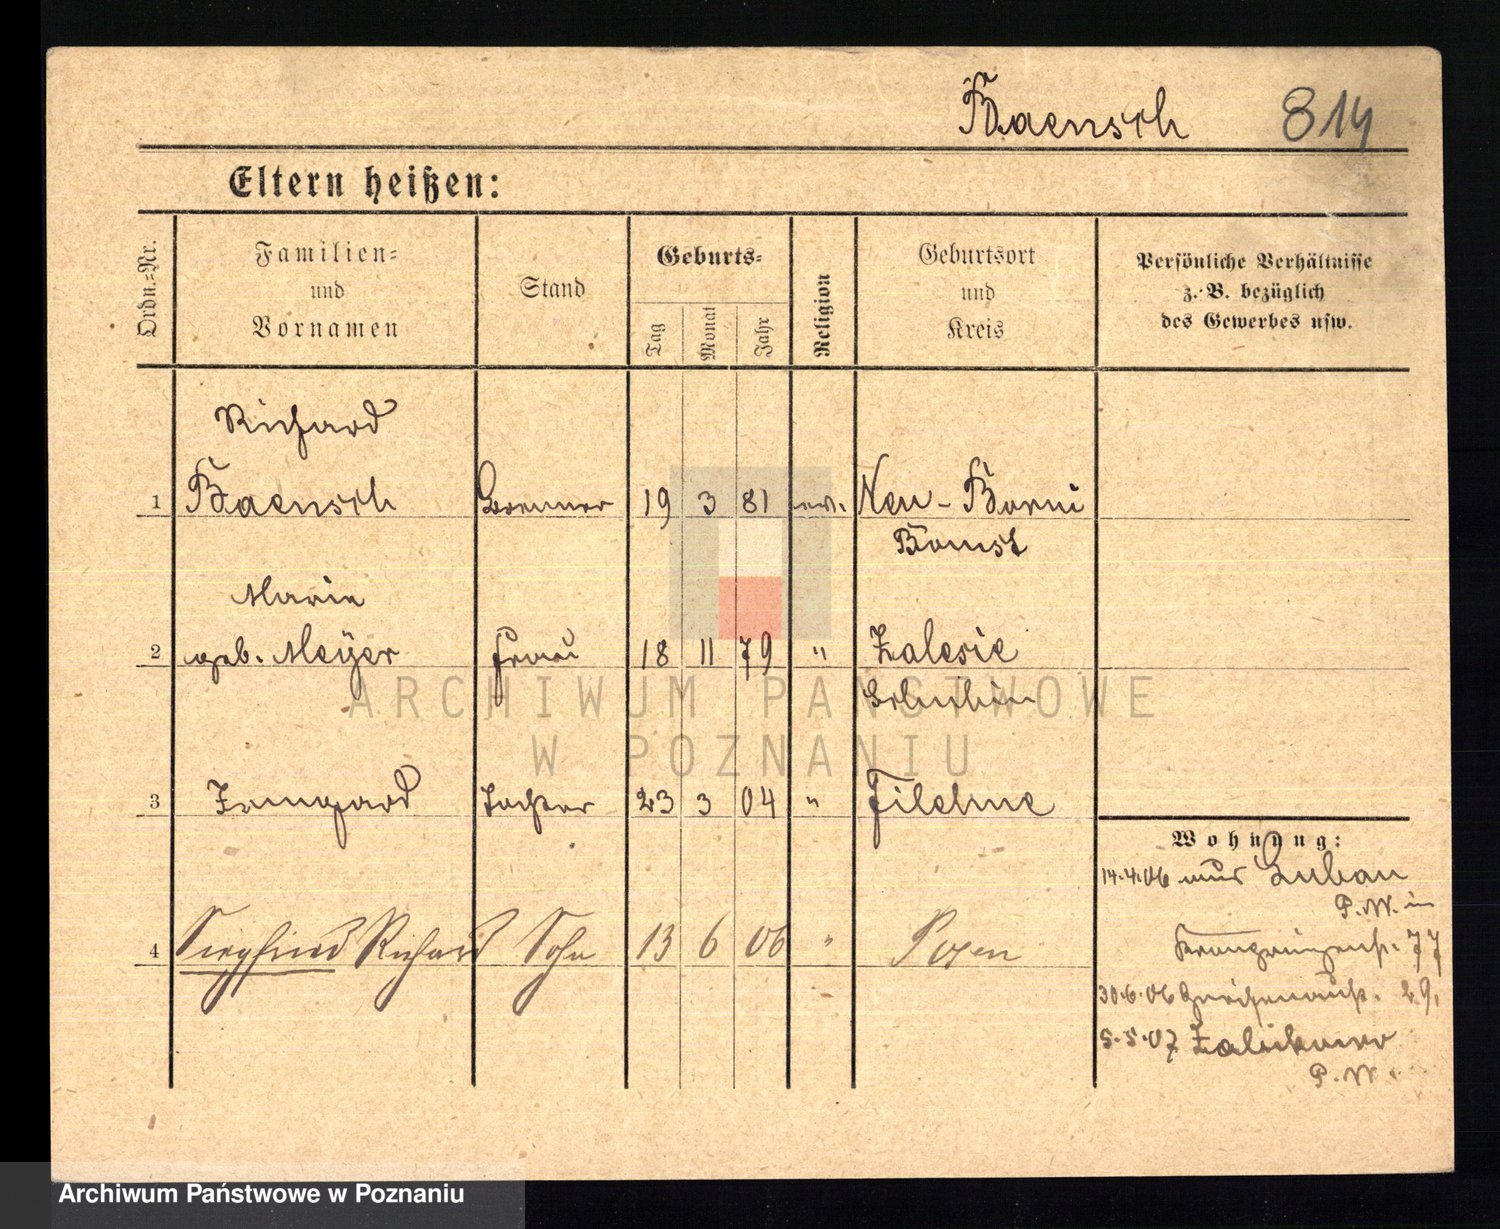 Baensch 814
Eltern heißen:
Ordn.=Nr.
Familien=
und
Vornamen
Stand
Geburts=
Tag
Monat
Jahr
Religion
Geburtsort
und
Kreis
Persönliche Verhältnisse
z. B. bezüglich
des Gewerbes usw.
Richard
1 Baensch Brenner 19 3 81 ev. Neu-Borui
Bomst
Marie
2 geb. Meyer Frau 18 11 79 " Zalesie
Schubin
3 Irmgard Tochter 23 3 04 " Filehne
Wohnung:
14.4.06 aus Luban
P.W. in
Kronprinzenstr. 77
4 Siegfried Richard Sohn 13 6 06 " Posen
30.6.06 Gneisenaustr. 29,
5.5.07 Zabikowo
P.W.
ARCHIWUM PAŃSTWOWE
W POZNANIU
Archiwum Państwowe w Poznaniu